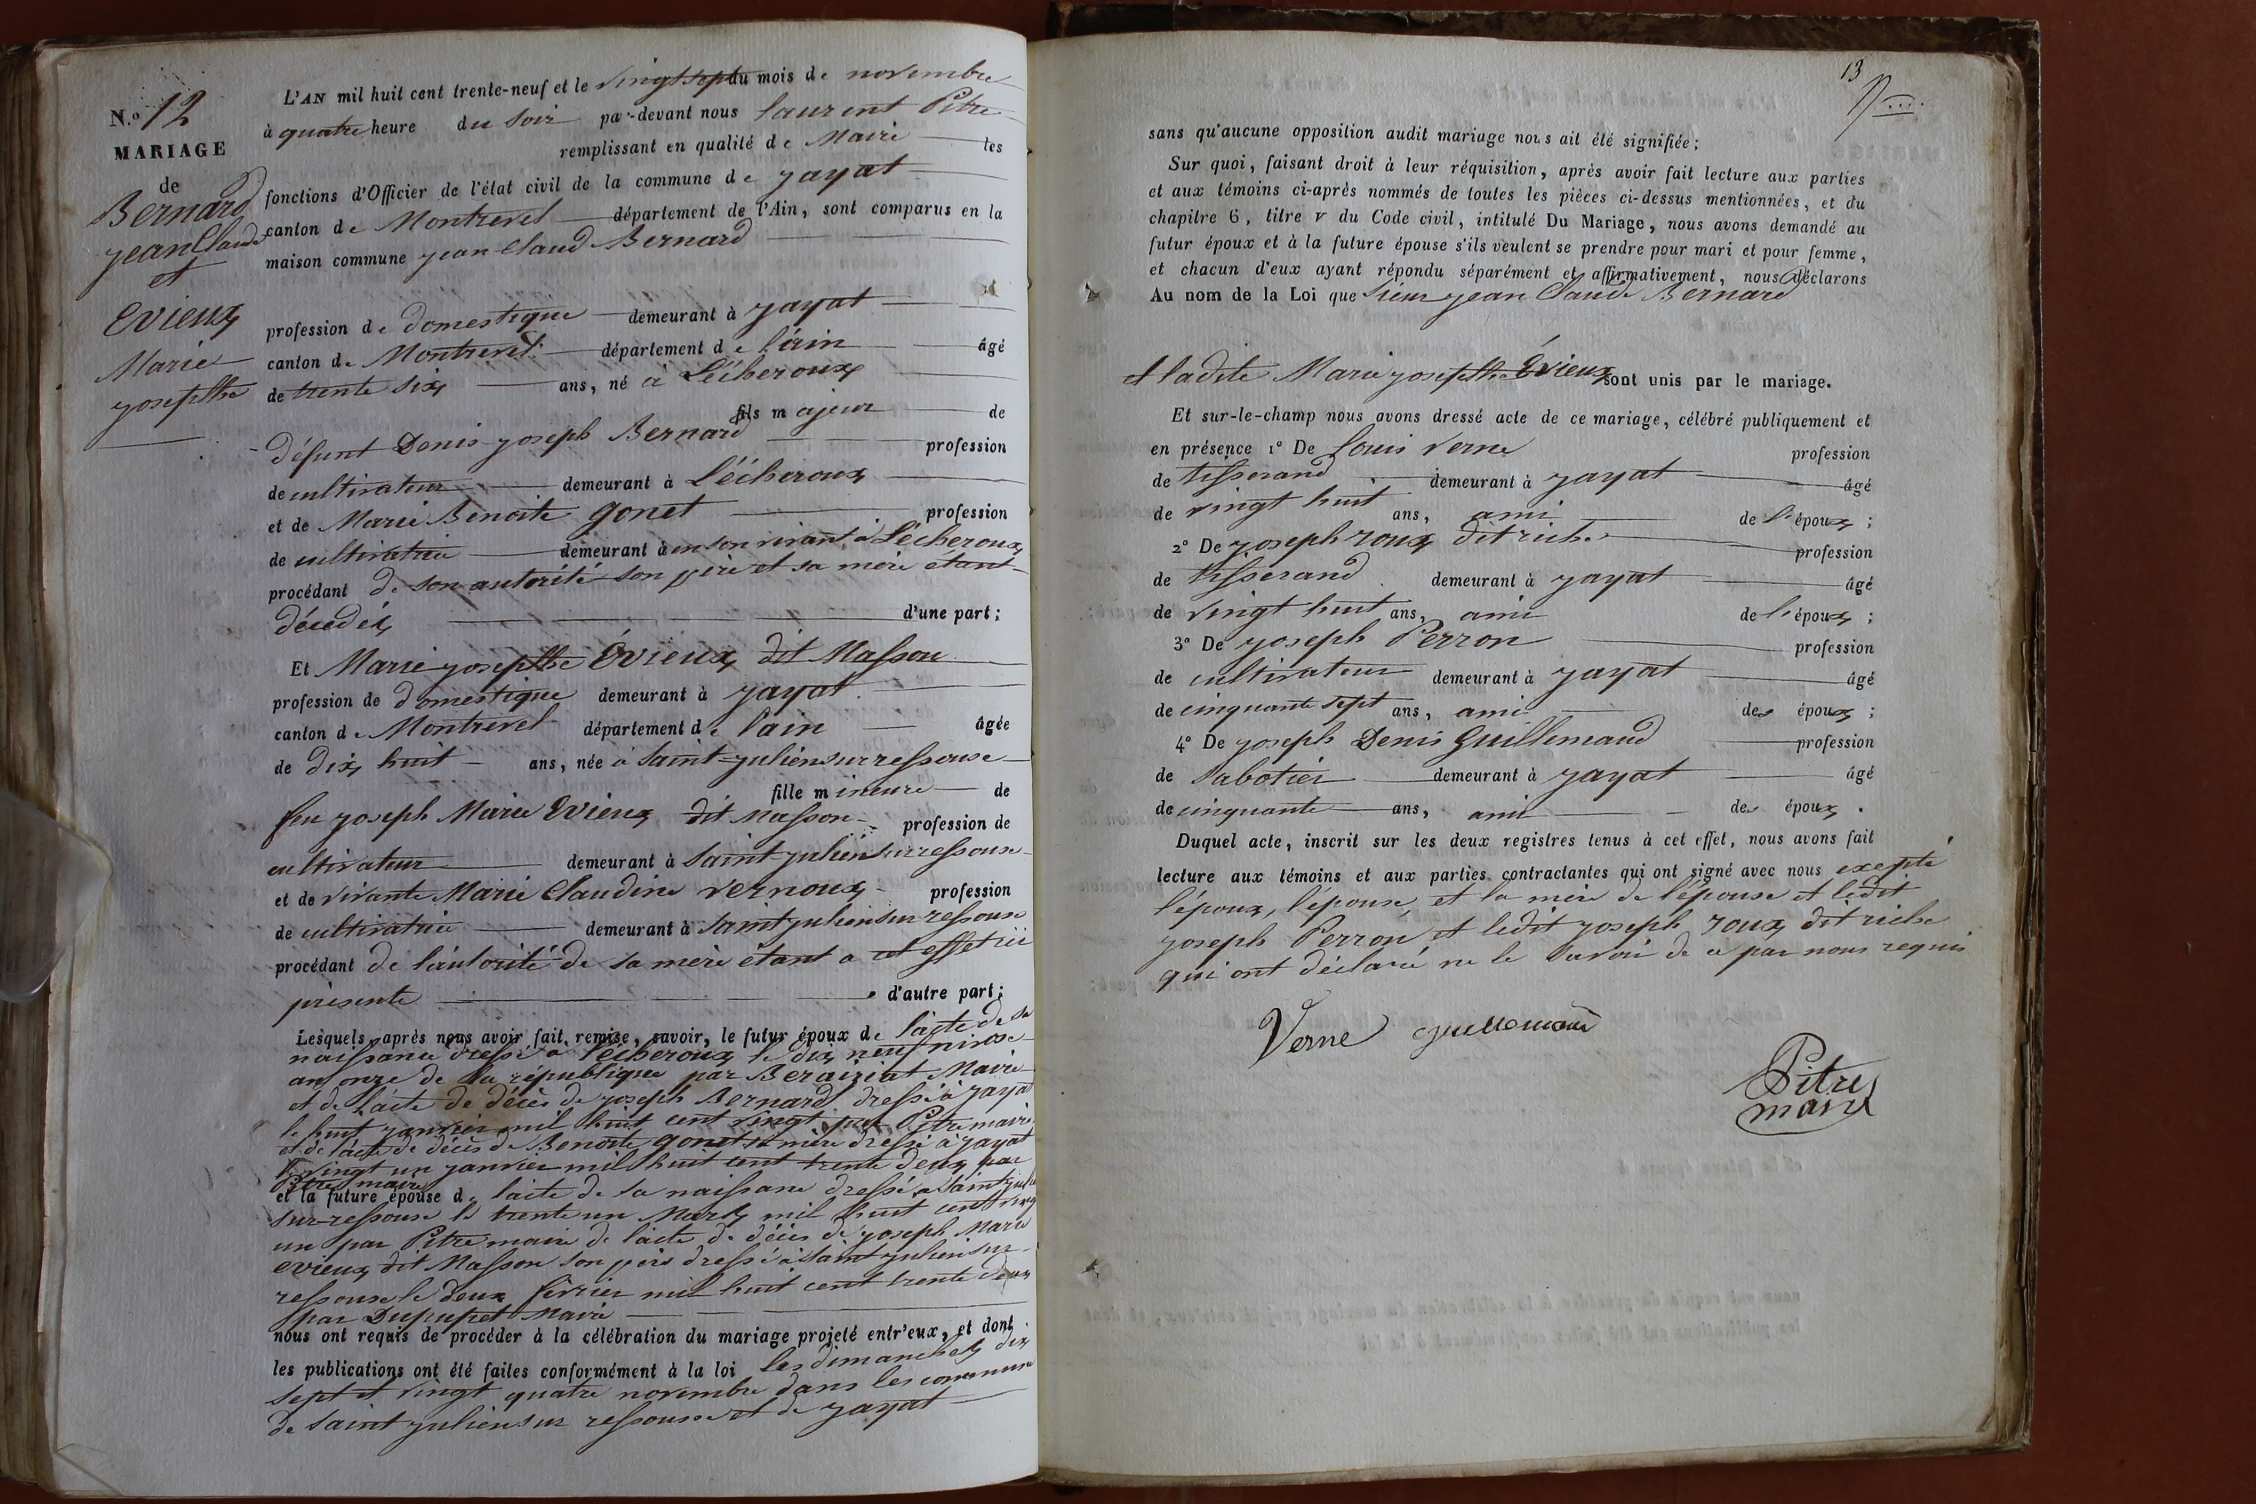 N.o 12
MARIAGE
de
Bernard
jean Claude
et
Evieux
Marie
josepthe
L'AN mil huit cent trente-neuf et le vingt sept du mois de novembre
à quatre heure du soir par-devant nous laurent Pitre
remplissant en qualité de Maire les
fonctions d'Officier de l'état civil de la commune de jayat
canton de Montrevel département de l'Ain, sont comparus en la
maison commune jean Claud Bernard
profession de domestique demeurant à jayat
canton de Montrevel département de l'ain âgé
de trente six ans, né à L'écheroux
fils majeur de
défunt Denis joseph Bernard profession
de cultivateur demeurant à L'écheroux
et de Marie Benoite gonet profession
de cultivatrice demeurant à en son vivant à L'écheroux
procédant de son autorité son père et sa mère étant
décedéx d'une part;
Et Marie josepthe Évieux dit Masson
profession de domestique demeurant à jayat
canton de Montrevel département de l'ain âgée
de dix huit ans, née à saint julien sur ressouse
fille mineure de
feu joseph Marie Evieux dit Masson profession de
cultivateur demeurant à saint julien sur ressouse
et de vivante Marie Claudine vernoux profession
de cultivatrice demeurant à saint julien sur ressouse
procédant de l'autorité de sa mère étant a cet effet ici
présente d'autre part;
Lesquels après nous avoir fait remise, savoir, le futur époux de l'acte de sa
naissance dressé à l'écheroux le dix neuf nivose
an onze de la république par Beraiziat Maire
et de l'acte de décès de joseph Bernard dressé à jayat
le huit janvier mil huit cent vingt par Pitre maire
et de l'acte de décès de Benoite gonet sa mère dressé à jayat
le vingt un janvier mil huit cent trente deux par
Pitre maire
et la future épouse de l'acte de sa naissance dressé à saint julien
sur ressouse le trente un Mars mil huit cent vingt
un par Pitre maire de l'acte de décès de joseph Marie
evieux dit Masson son père dressé à saint julien sur
ressouse le deux février mil huit cent trente deux
par Dupupet Maire
nous ont requis de procéder à la célébration du mariage projeté entr'eux, et dont
les publications ont été faites conformément à la loi les dimanches dix
sept et vingt quatre novembre dans les commune
de saint julien sur ressouse et de jayat
13
sans qu'aucune opposition audit mariage nous ait été signifiée;
Sur quoi, faisant droit à leur réquisition, après avoir fait lecture aux parties
et aux témoins ci-après nommés de toutes les pièces ci-dessus mentionnées, et du
chapitre 6, titre v du Code civil, intitulé Du Mariage, nous avons demandé au
futur époux et à la future épouse s'ils veulent se prendre pour mari et pour femme,
et chacun d'eux ayant répondu séparément et affirmativement, nous déclarons
Au nom de la Loi que sieur jean Claude Bernard
et ladite Marie josepthe Évieux sont unis par le mariage.
Et sur-le-champ nous avons dressé acte de ce mariage, célébré publiquement et
en présence 1° De Louis verne profession
de tisserand demeurant à jayat âgé
de vingt huit ans, ami de l'époux;
2° De joseph roux dit riche profession
de tisserand demeurant à jayat âgé
de vingt huit ans, ami de l'époux;
3° De joseph Perron profession
de cultivateur demeurant à jayat âgé
de cinquante sept ans, ami des époux;
4° De joseph Denis Guillemaud profession
de sabotier demeurant à jayat âgé
de cinquante ans, ami des époux.
Duquel acte, inscrit sur les deux registres tenus à cet effet, nous avons fait
lecture aux témoins et aux parties contractantes qui ont signé avec nous excepté
l'époux, l'épouse, et la mère de l'épouse et ledit
joseph Perron et ledit joseph roux dit riche
qui ont déclaré ne le savoir de ce par nous requis
Verne guillemaud
Pitre
maire